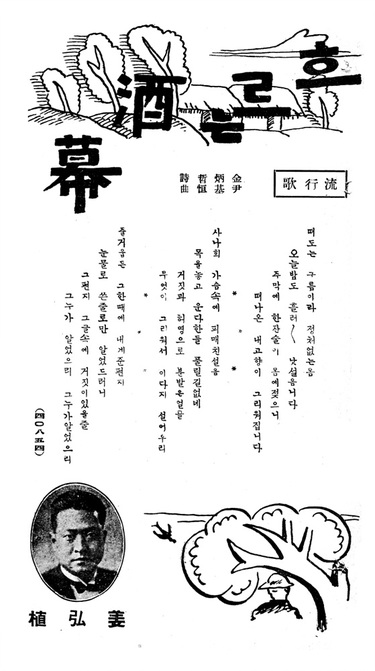 흐르는 酒幕
流行歌
金炳哲 詩
尹基恒 曲
떠도는 구름이라 정처없는몸
오늘밤도 흘러〱 낫설음니다
주막에 한잔술이 몸에젖으니
떠나온 내고향이 그리워집니다
* * *
사나회 가슴속에 피매친설음
목을놓고 운다한들 풀릴길없네
거짓과 허영으로 분발은얼골
무엇이 그리워서 이다지 설어우리
* * *
즐거웁든 그한때에 내게준편지
눈물로 쓴줄로만 알었드러니
그편지 그글속에 거짓이있을줄
그누가 알었으리 그누가알었으리
(四〇八五四)
姜弘植